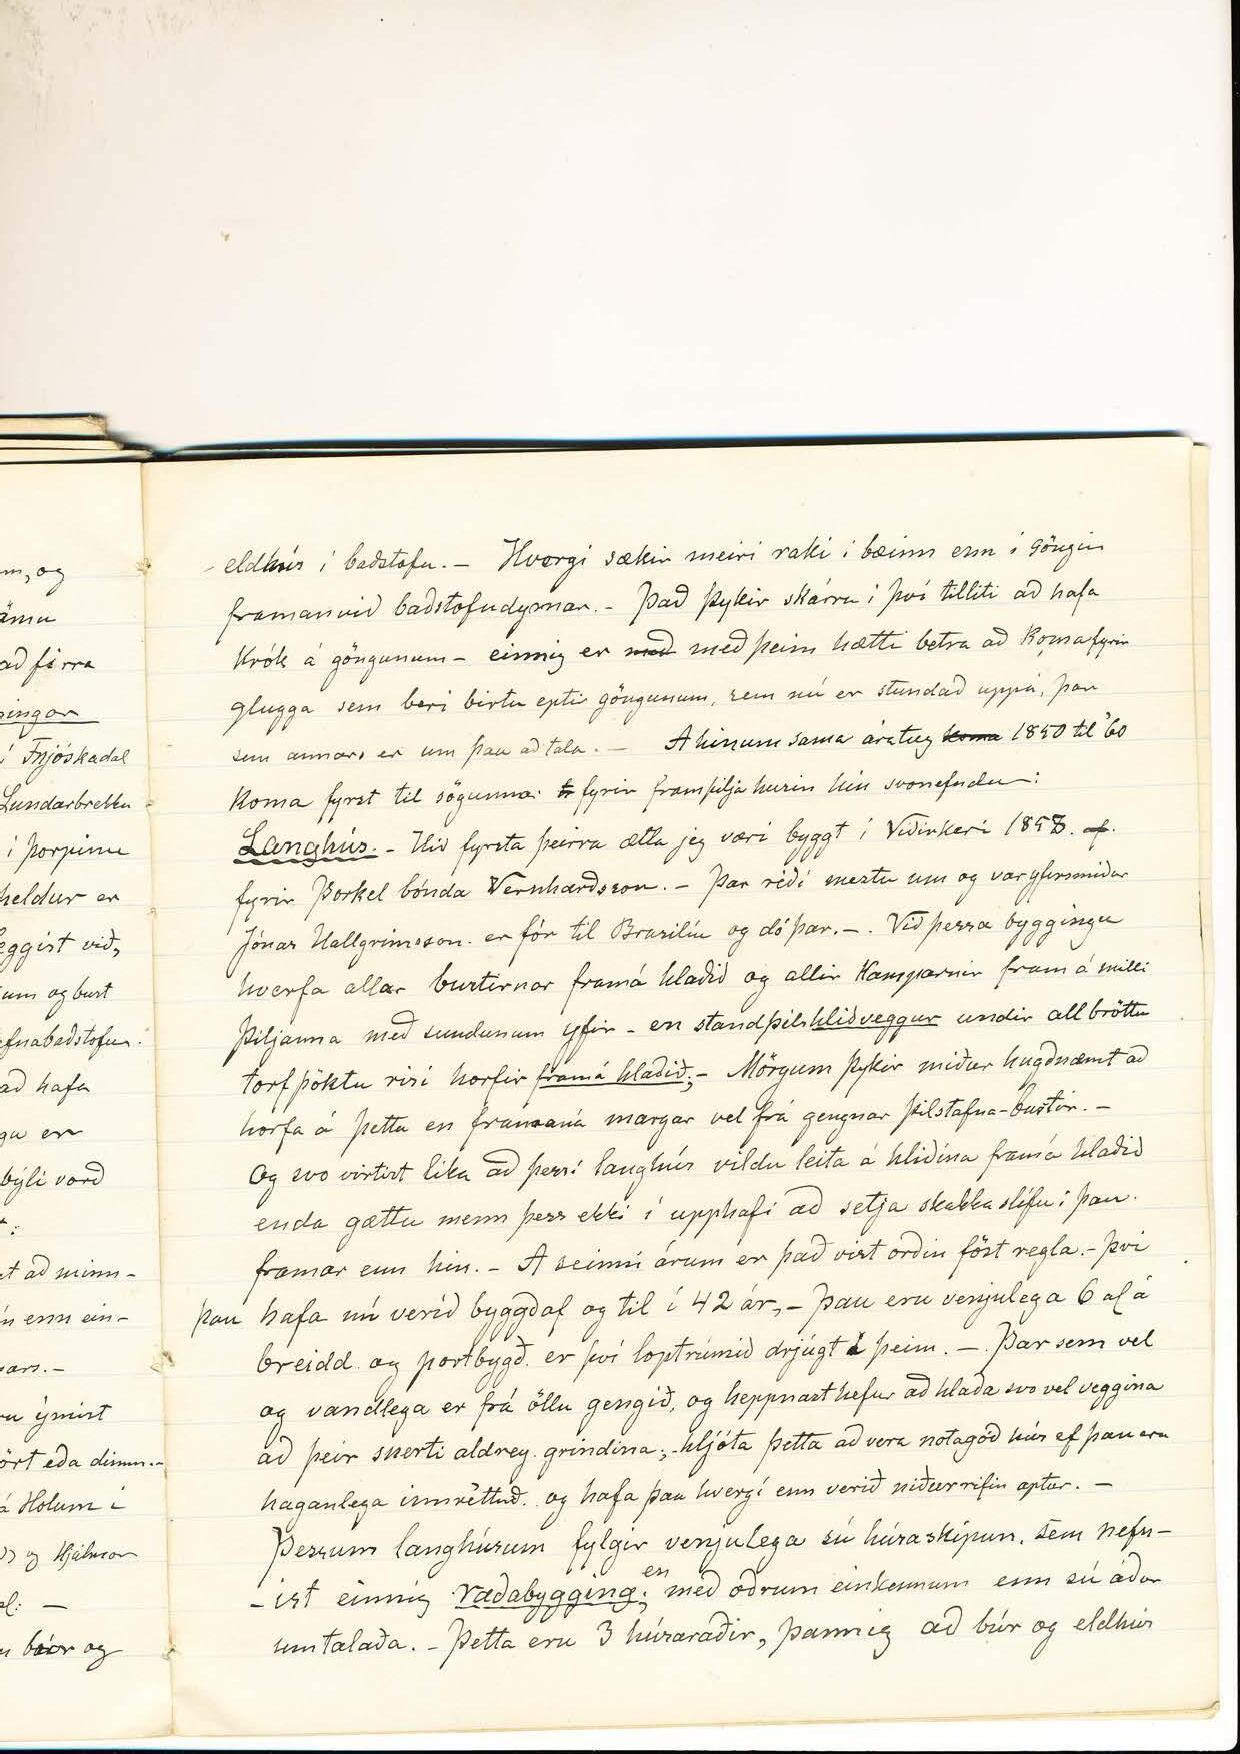 eldhús í baðstofu. – Hvergi sækir meiri raki í bæinn enn í göngin
framanvið baðstofudyrnar. – Það þykir skárra í því tilliti að hafa
krók á göngunum – einnig er með með þeim hætti betra að koma fyrir
glugga sem beri birtu eptir göngunum, sem nú er stundað uppá, þar
sem annars er um þau að tala. – Á hinum sama áratug koma 1850 til '60
koma fyrst til sögunnar fyrir framþilja húsin hin svonefndu:
Langhús. – Hið fyrsta þeirra ætla jeg væri byggt í Víðirkeri 1858. af.
fyrir Þorkel bónda Vernharðsson. – Þar réði mestu um og var yfirsmiður
Jónas Hallgrímsson. er fór til Brasilíu og dó þar. –. Við þessa byggingu
hverfa allar burstirnar framá hlaðið og allir kamparnir fram á milli
þiljanna með sundunum yfir – en standþils hliðveggur undir allbröttu
torfþöktu risi horfir framá hlaðið; – Mörgum þykir miður hugðnæmt að
horfa á þetta en framaná margar vel frá gengnar þilstafna-burstir. –
Og svo virtist líka að þessi langhús vildu leita á hliðina framá hlaðið
enda gættu menn þess ekki í upphafi að setja skakkaslífu í þau.
framar enn hin. – Á seinni árum er það víst orðin föst regla. – því
þau hafa nú verið byggð af og til í 42 ár, – Þau eru venjulega 6 al á
breidd og portbygð. er því loptrúmið drjúgt í þeim. – Þar sem vel
og vandlega er frá öllu gengið, og heppnast hefur að hlaða svo vel veggina
að þeir snerti aldrey grindina; – hljóta þetta að vera notagóð hús ef þau eru
haganlega innréttuð. og hafa þau hvergi enn verið niðurrifin aptur. –
Þessum langhúsum fylgir venjulega sú húsaskipun, sem nefn-
-ist einnig raðabygging; en með öðrum einkennum enn sú áður
umtalaða. – Þetta eru 3 húsaraðir, þannig að búr og eldhús